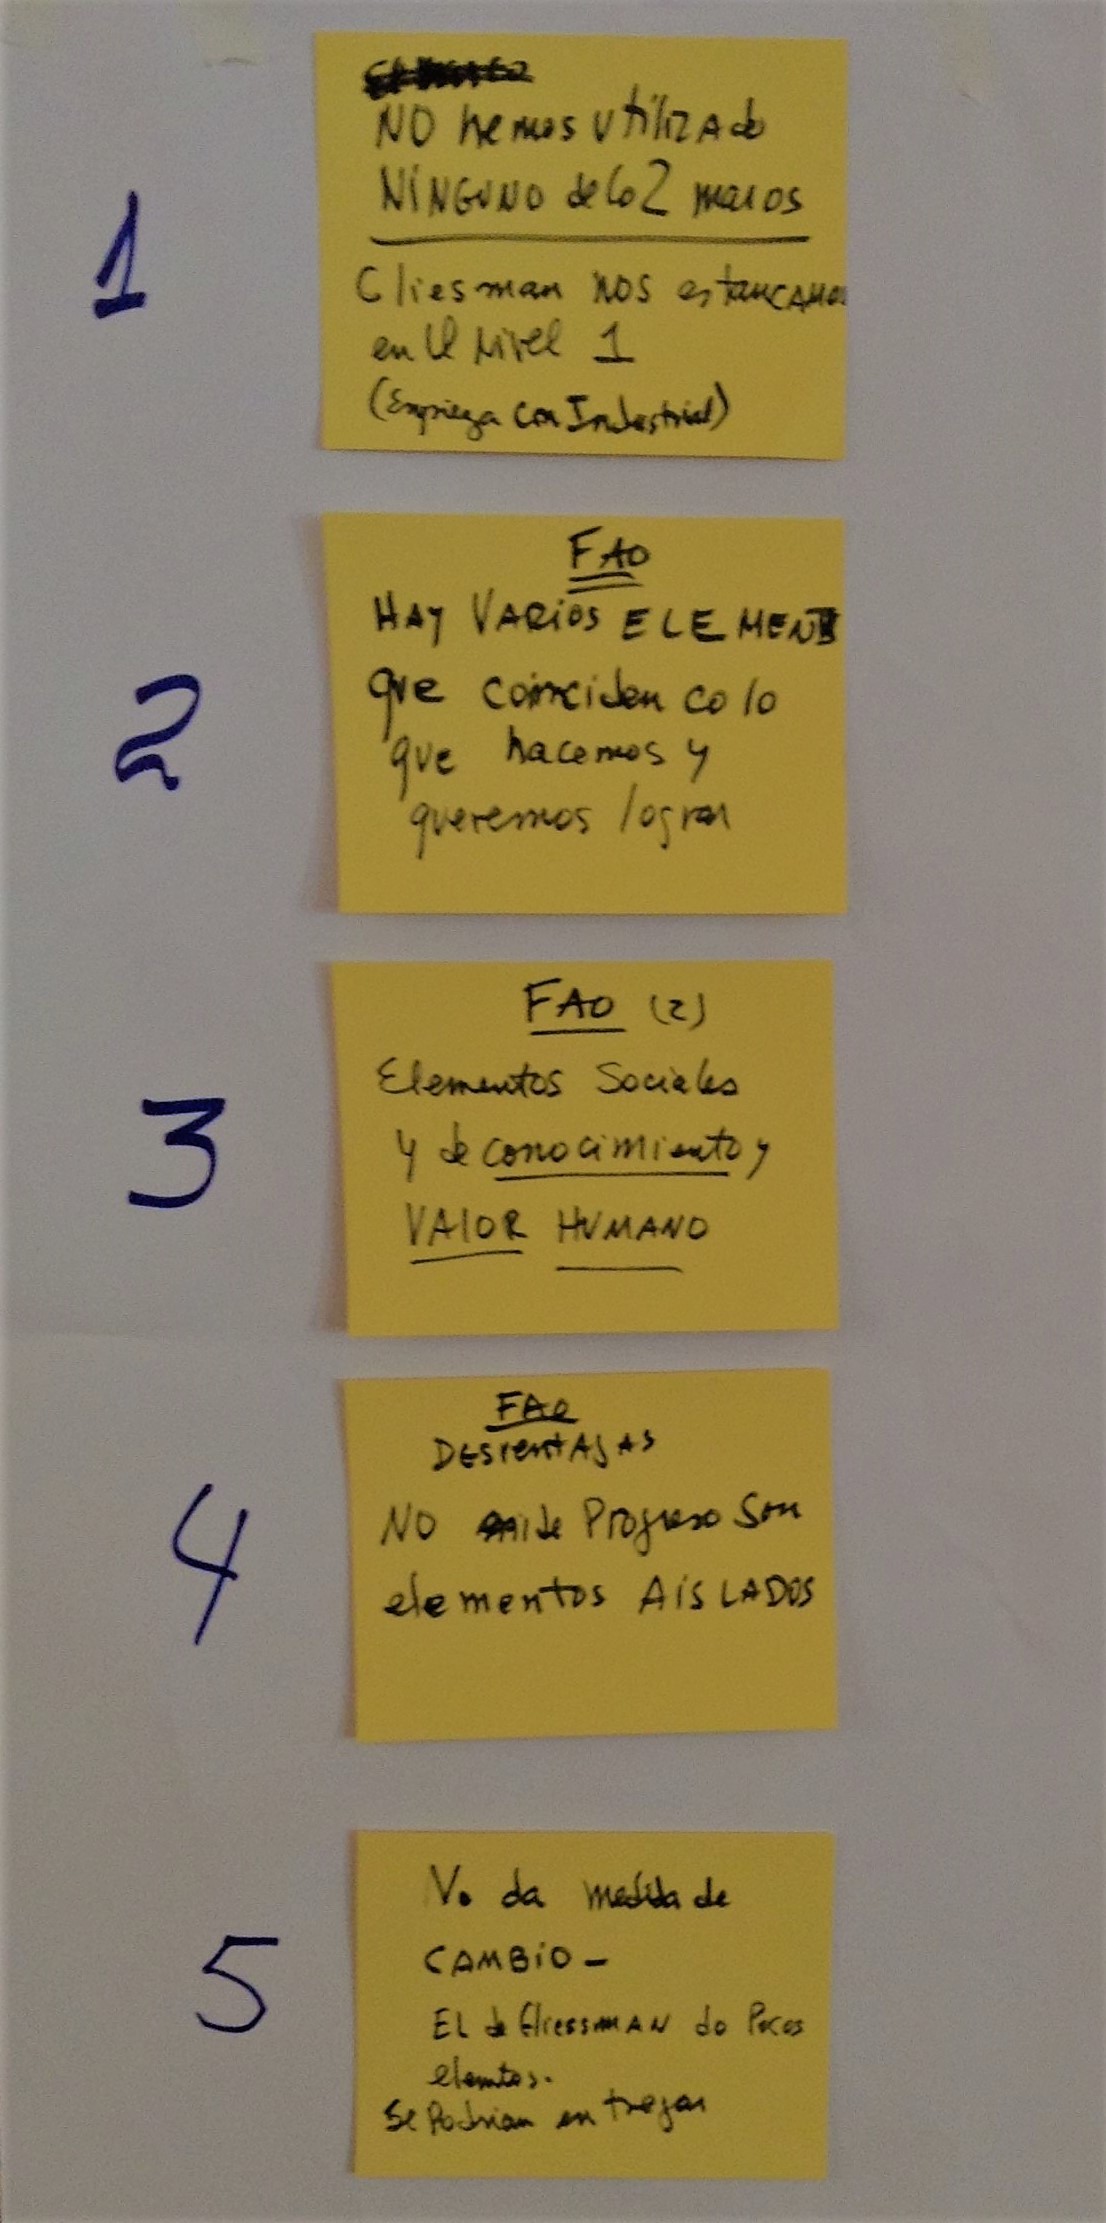 1
NO hemos utilizado
NINGUNO de lo 2 marcos
Cliesman nos estancamos
en el Nivel 1
(Empieza con Industrial)
2
FAO
HAY VARIOS ELEMENTS
que coinciden co lo
que hacemos y
queremos lograr
3
FAO (2)
Elementos Sociales
y de conocimiento y
VALOR HUMANO
4
FAO
DESVENTAJAS
NO mide Progreso Son
elementos AISLADOS
5
No da medida de
CAMBIO -
EL de Gliessman da Pocos
elemtos.
Se Podrian